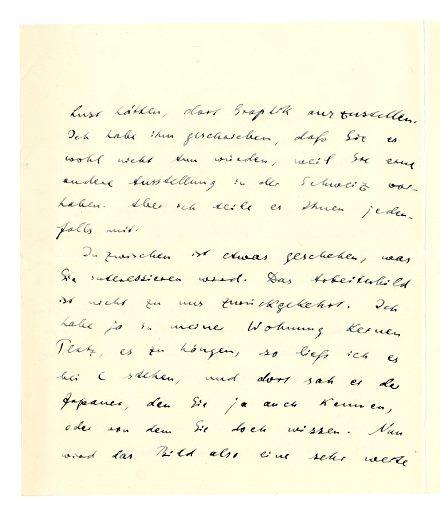 Lust hätten, dort Graphik auszustellen.
Ich habe ihm geschrieben, daß Sie es
wohl nicht tun würden, weil Sie eine
andere Ausstellung in der Schweiz vor-
haben. Aber ich teile es Ihnen jeden-
falls mit.
Inzwischen ist etwas geschehen, was
Sie interessieren wird. Das Arbeiterbild
ist nicht zu mir zurückgekehrt. Ich
habe ja in meiner Wohnung keinen
Platz, es zu hängen, so ließ ich es
bei C stehen, und dort sah es de
Japaner, den Sie ja auch kennen,
oder von dem Sie doch wissen. Nun
wird das Bild also eine sehr weite